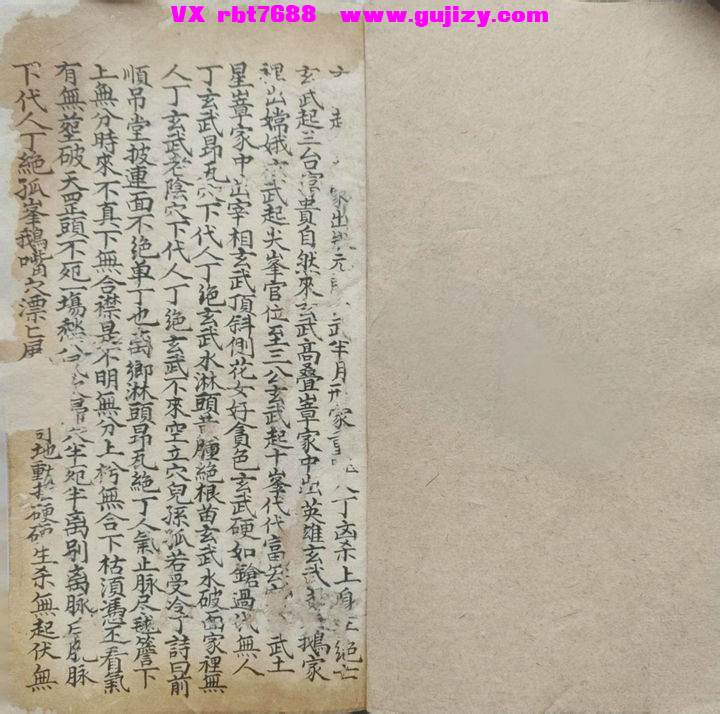 VX rbt7688 www.gujizy.com
家出 元 武半月 家 人丁 上身 絕亡
玄武起三台官貴自然來玄武高叠嶂家中出英雄玄武 鵝家
裡出嫦娥玄武起尖峯官位至三公玄武起十峯代代富 武土
星嶂家中出宰相玄武頂斜側花女好貪色玄武硬如鎗過代無人
丁玄武昂瓦穴下代人丁絕玄武水淋頭黄腫絕根苗玄武水破面家裡無
人丁玄武老陰穴下代人丁絕玄武不來空立穴兒孫孤若受冷丁詩曰前
順吊堂披連面不絕单丁也离鄉淋頭昂瓦絕丁人氣止脉尽毬簷下
上無分時來不真下無合襟是不明無分上 無合下枯須憑 看氣
有無塟破天罡頭不 一塲愁 穴半 半离别离脉 脉
下代人丁絕孤峯鵝嘴穴漂 地動 生杀無起伏無